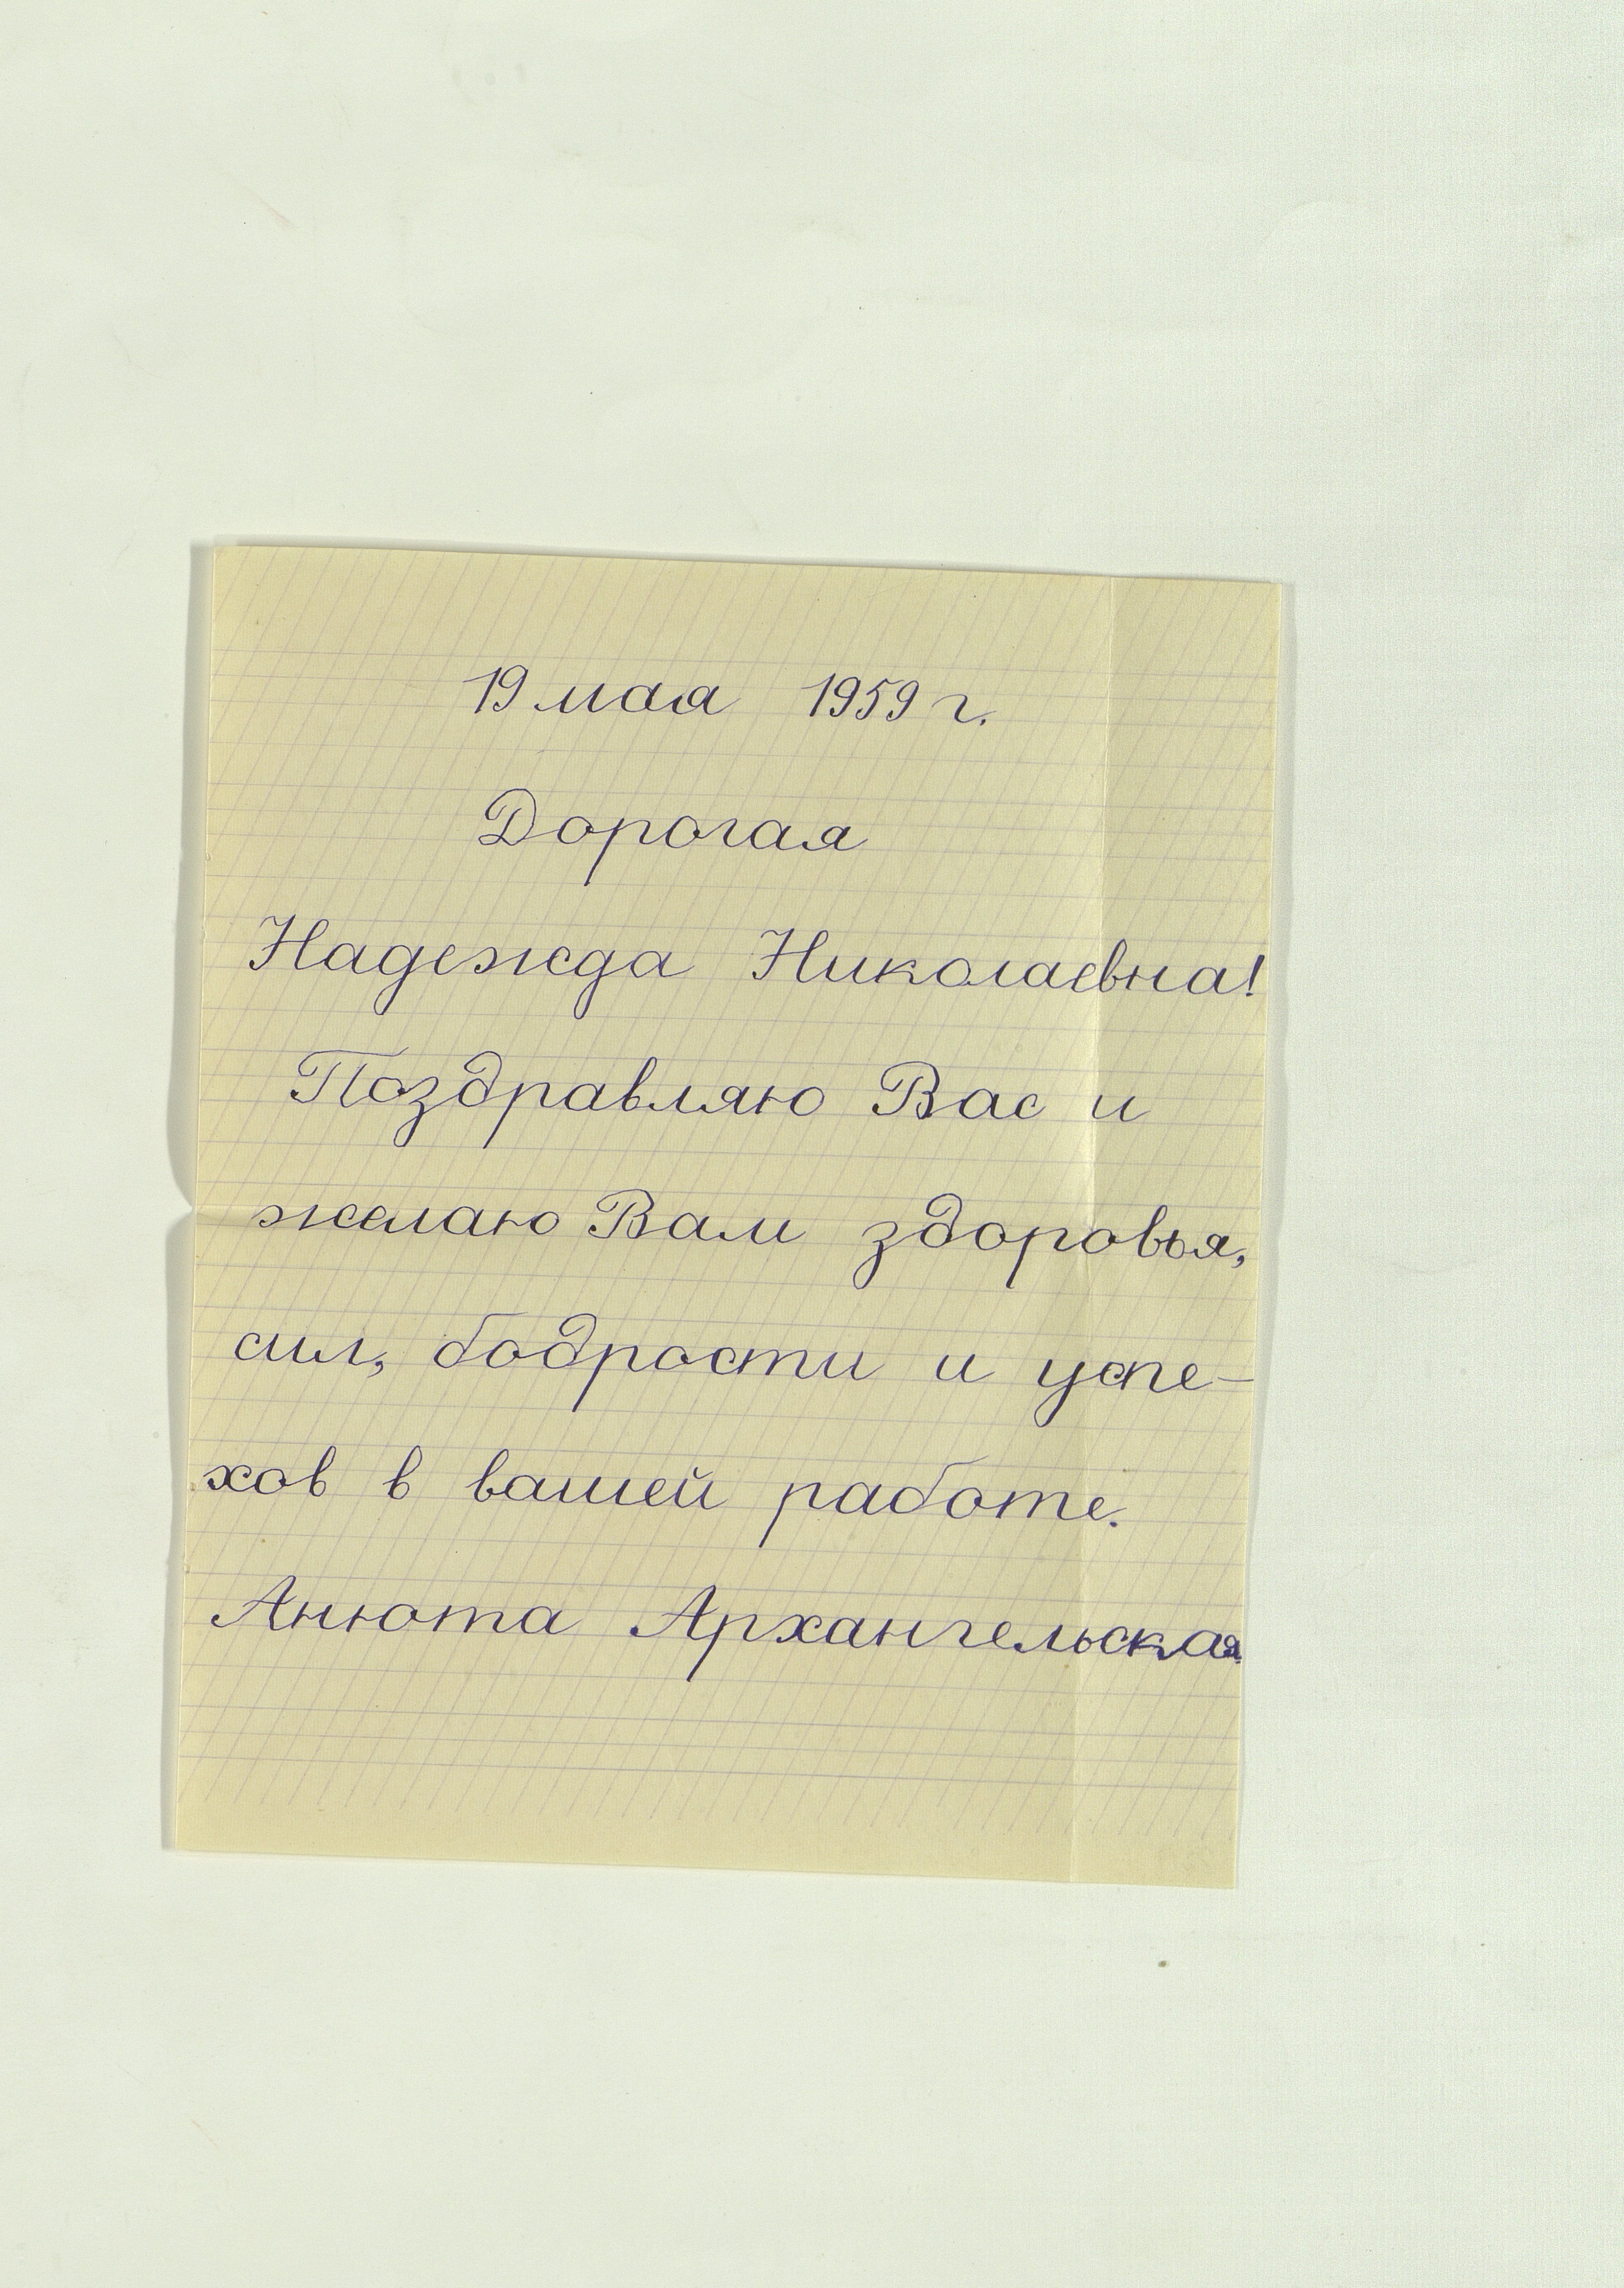 19 мая 1959 г.
Дорогая
Надежда Николаевна!
Поздравляю Вас и
желаю Вам здоровья,
сил, бодрости и успе-
хов в вашей работе.
Анюта Архангельская.